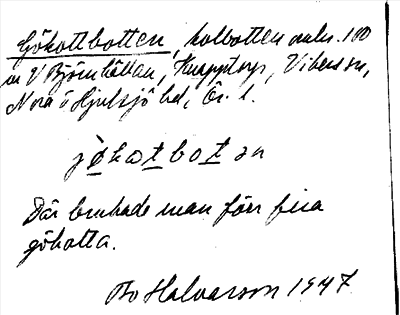 Gökottbotten, kolbotten omkr. 100
m V Björnhöttan, Knapptorp, Vikers sn,
Nora o Hjulsjö hd, Ör. l.
jö̀kɷt bo t ən
Där brukade man förr fira
gökotta.
Bo Halvarson 1947